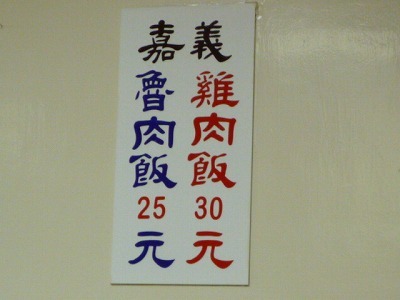 嘉義
雞肉飯30元
魯肉飯25元